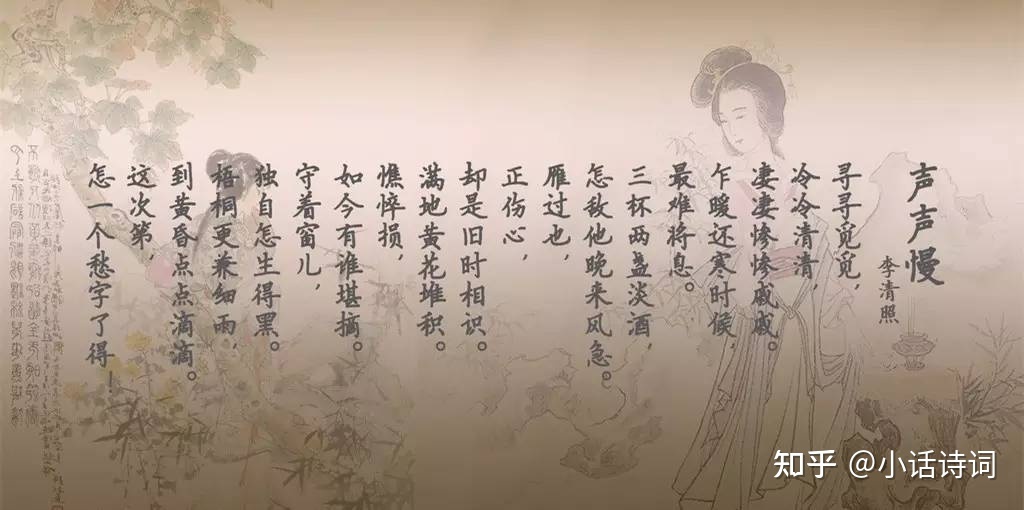 声声慢
李清照
寻寻觅觅，
冷冷清清，
凄凄惨惨戚戚。
乍暖还寒时候，
最难将息。
三杯两盏淡酒，
怎敌他晚来风急。
雁过也，
正伤心，
却是旧时相识。
满地黄花堆积。
憔悴损，
如今有谁堪摘。
守着窗儿，
独自怎生得黑。
梧桐更兼细雨，
到黄昏点点滴滴。
这次第，
怎一个愁字了得！
知乎 @小话诗词